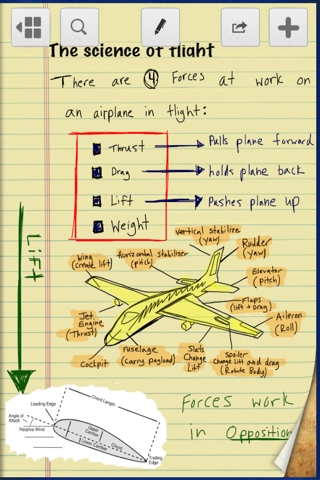 The science of flight
There are 4 Forces at work on
an airplane in flight:
Thrust Pulls plane forward
Drag holds plane back
Lift Pushes plane up
Weight
Lift
Vertical stabilize
(yaw)
Rudder
(yaw)
Horizontal stabilizer
(pitch)
Wing
(create lift)
Elevator
(Pitsh)
Flaps
(lift + Drag)
Aileron
(Roll)
Jet
Engine
(Thrust)
Cockpit
Fuselage
(Carry payload)
Slats
Change
Lift
spoiler
Change lift and drag
(Rotate Body)
Chord Length
Leading Edge
Angle of
Attack
Relative Wind
Upper
Camber
Lower Camber
Chord
Trailing
Edge
Forces work
in Opposition